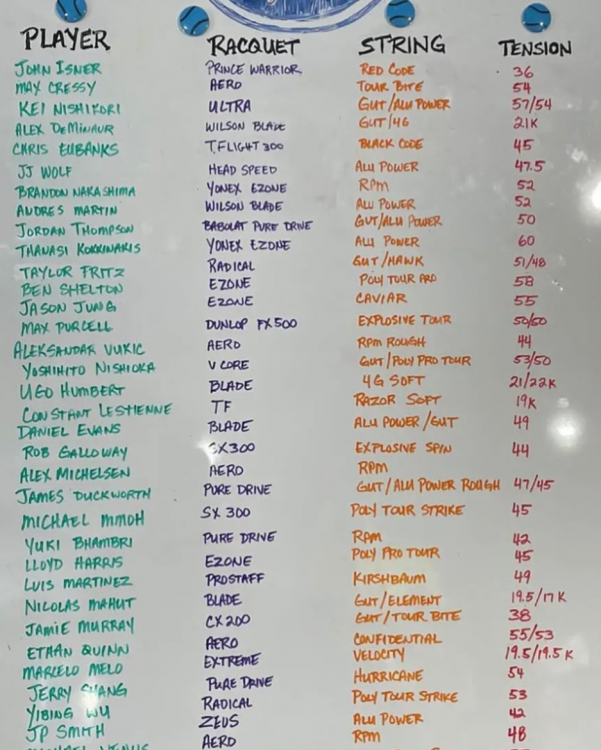 PLAYER RACQUET STRING TENSION
JOHN ISNER PRINCE WARRIOR RED CODE 36
MAX CRESSY AERO TOUR BITE 54
KEI NISHIKORI ULTRA GUT/ALU POWER 57/54
ALEX DEMINAUR WILSON BLADE GUT/4G 21K
CHRIS EUBANKS T.FLIGHT 300 BLACK CODE 45
JJ WOLF HEAD SPEED ALU POWER 47.5
BRANDON NAKASHIMA YONEX EZONE RPM 52
ANDRES MARTIN WILSON BLADE ALU POWER 52
JORDAN THOMPSON BABOLAT PURE DRIVE GUT/ALU POWER 50
THANASI KOKKINAKIS YONEX EZONE ALU POWER 60
TAYLOR FRITZ RADICAL GUT/HAWK 51/48
BEN SHELTON EZONE POLY TOUR PRO 58
JASON JUNG EZONE CAVIAR 55
MAX PURCELL DUNLOP FX500 EXPLOSIVE TOUR 50/50
ALEKSANDAR VUKIC AERO RPM ROUGH 44
YOSHIHITO NISHIOKA V CORE GUT/POLY PRO TOUR 53/50
UGO HUMBERT BLADE 4G SOFT 21/22K
CONSTANT LESTIENNE TF RAZOR SOFT 19K
DANIEL EVANS BLADE ALU POWER/GUT 49
ROB GALLOWAY CX300 EXPLOSIVE SPIN 44
ALEX MICHELSEN AERO RPM
JAMES DUCKWORTH PURE DRIVE GUT/ALU POWER ROUGH 47/45
MICHAEL MMOH SX 300 POLY TOUR STRIKE 45
YUKI BHAMBRI PURE DRIVE RPM 42
LLOYD HARRIS EZONE POLY PRO TOUR 45
LUIS MARTINEZ PROSTAFF KIRSHBAUM 49
NICOLAS MAHUT BLADE GUT/ELEMENT 19.5/17K
JAMIE MURRAY CX200 GUT/TOUR BITE 38
ETHAN QUINN AERO CONFIDENTIAL 55/53
MARCELO MELO EXTREME VELOCITY 19.5/19.5K
JERRY SHANG PURE DRIVE HURRICANE 54
YIBING WU RADICAL POLY TOUR STRIKE 53
JP SMITH ZEUS ALU POWER 42
AERO RPM 48